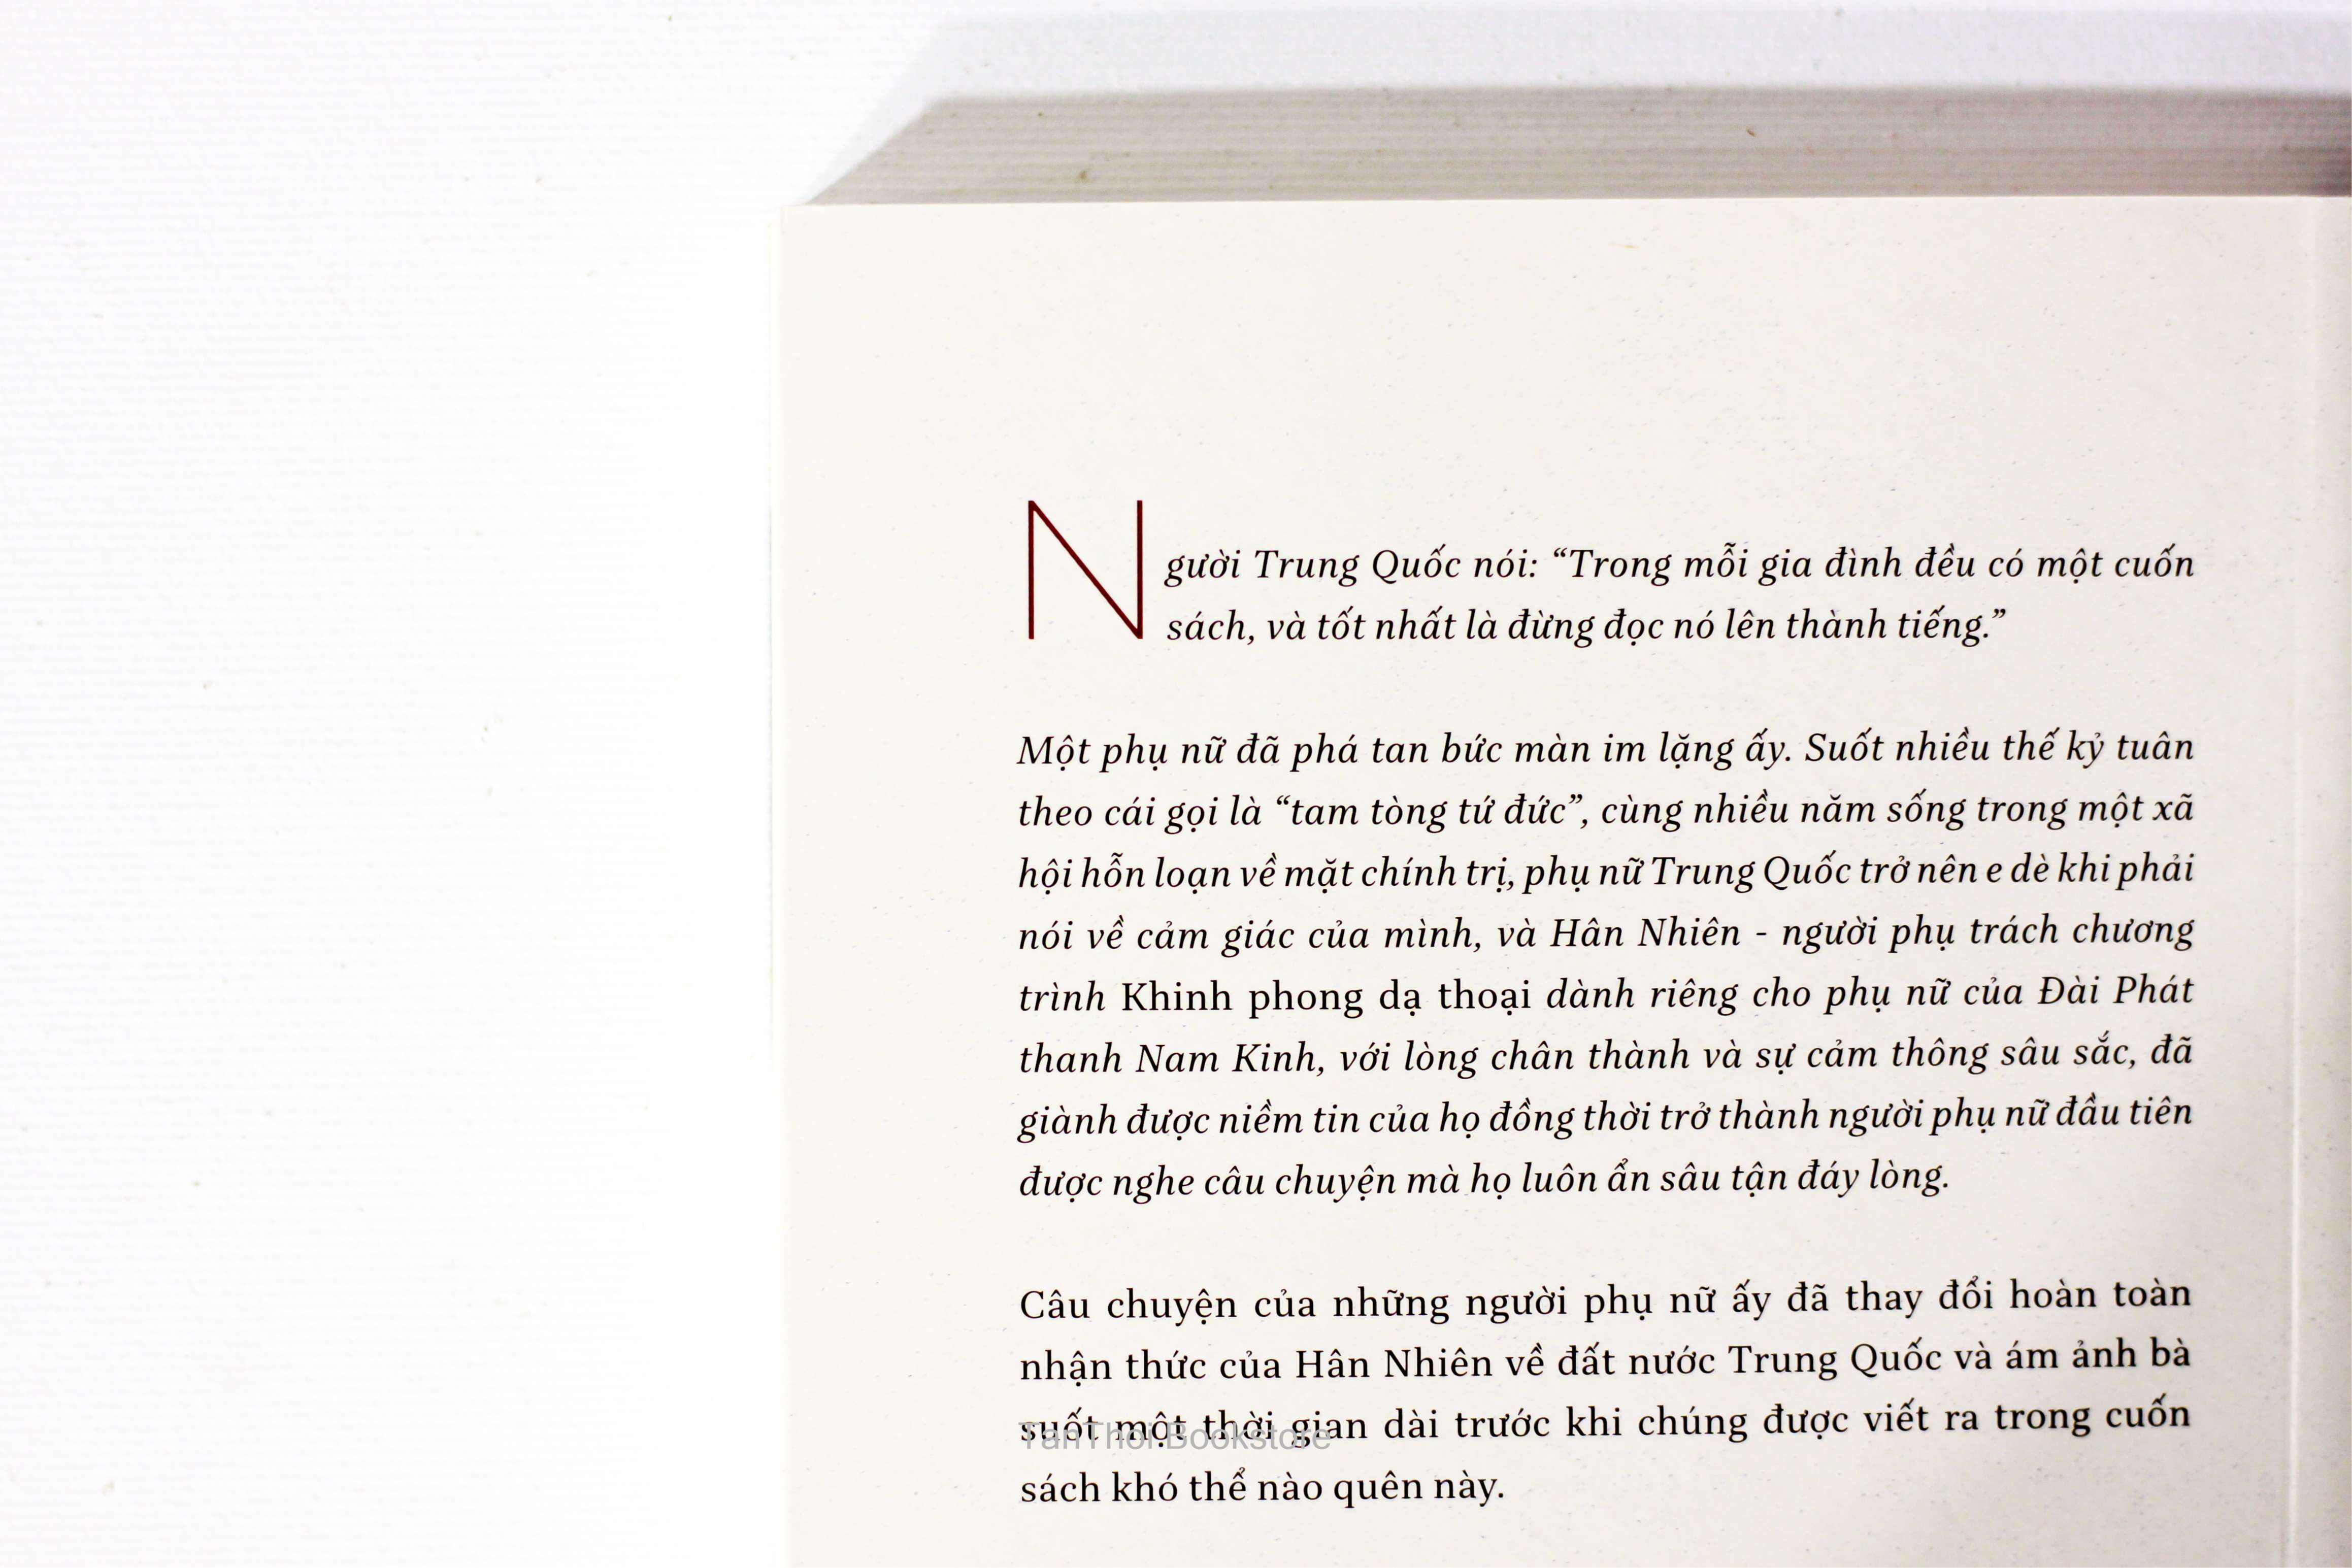 Người Trung Quốc nói: “Trong mỗi gia đình đều có một cuốn
sách, và tốt nhất là đừng đọc nó lên thành tiếng.”
Một phụ nữ đã phá tan bức màn im lặng ấy. Suốt nhiều thế kỷ tuân
theo cái gọi là “tam tòng tứ đức”, cùng nhiều năm sống trong một xã
hội hỗn loạn về mặt chính trị, phụ nữ Trung Quốc trở nên e dè khi phải
nói về cảm giác của mình, và Hân Nhiên - người phụ trách chương
trình Khinh phong dạ thoại dành riêng cho phụ nữ của Đài Phát
thanh Nam Kinh, với lòng chân thành và sự cảm thông sâu sắc, đã
giành được niềm tin của họ đồng thời trở thành người phụ nữ đầu tiên
được nghe câu chuyện mà họ luôn ẩn sâu tận đáy lòng.
Câu chuyện của những người phụ nữ ấy đã thay đổi hoàn toàn
nhận thức của Hân Nhiên về đất nước Trung Quốc và ám ảnh bà
suốt một thời gian dài trước khi chúng được viết ra trong cuốn
TanThoi Bookstore
sách khó thể nào quên này.